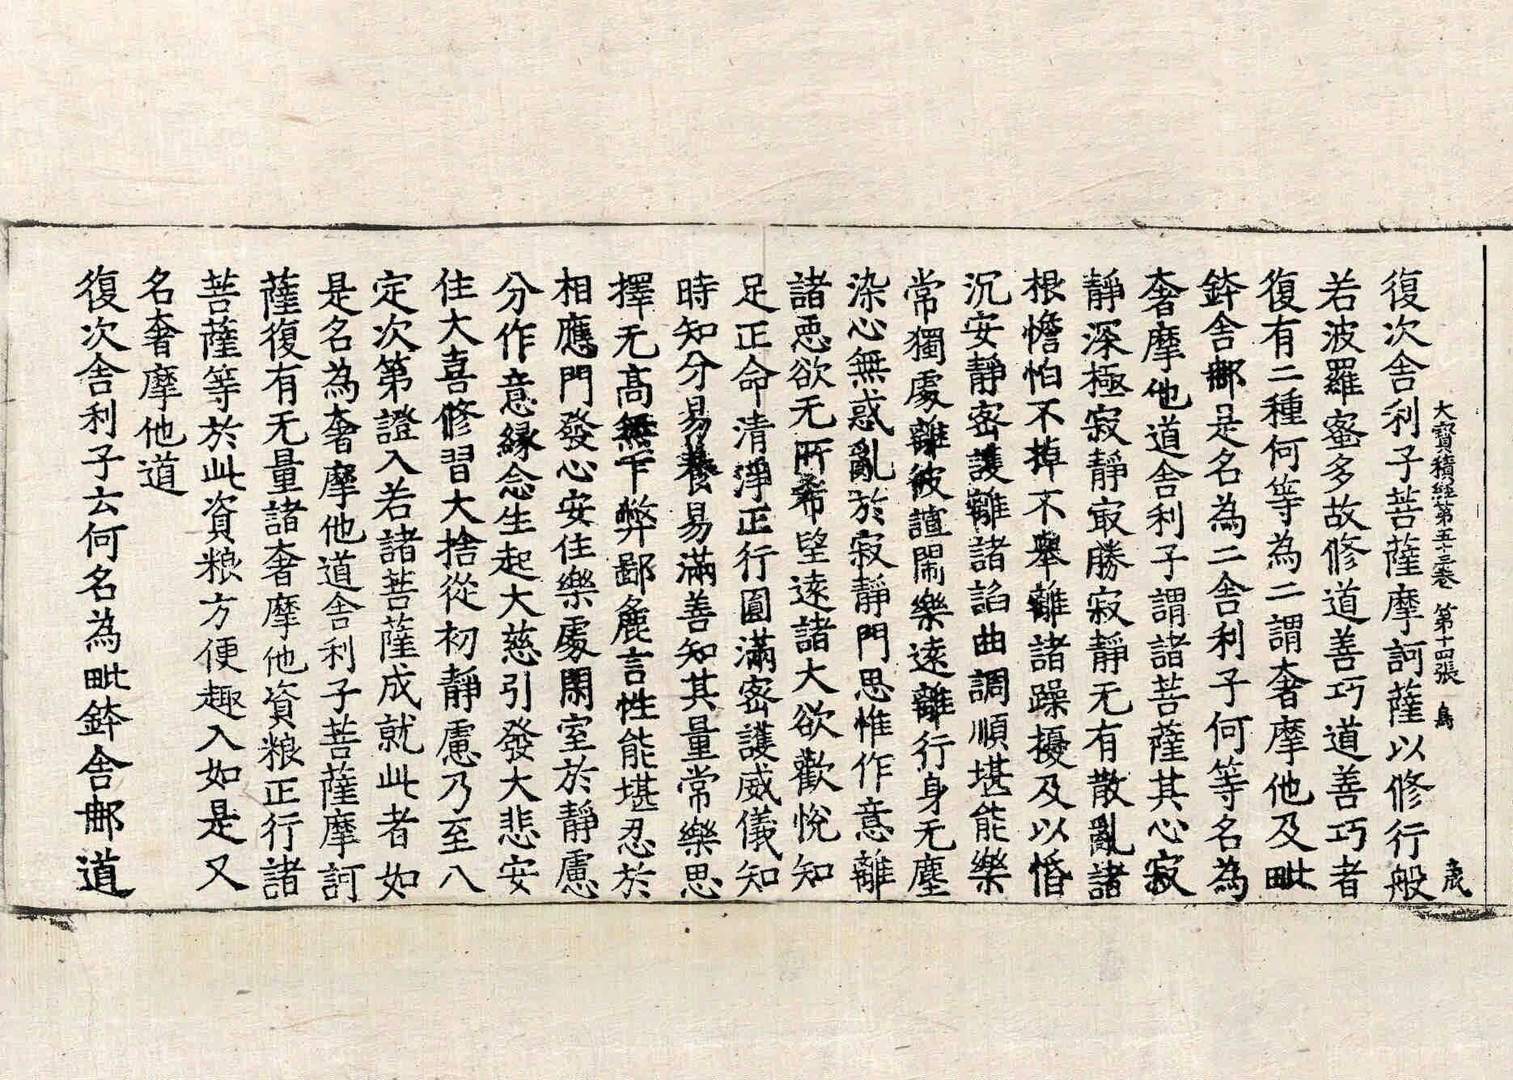 大寶積經第五十三卷 第十四張 鳥
復次舍利子菩薩摩訶薩以修行般
若波羅蜜多故修道善巧道善巧者
復有二種何等為二謂奢摩他及毗
鉢舍那是名為二舍利子何等名為
奢摩他道舍利子謂諸菩薩其心寂
靜深極寂靜冣勝寂靜无有散亂諸
根憺怕不掉不舉離諸躁擾及以惛
沉安靜密護離諸諂曲調順堪能樂
常獨處離彼諠閙樂遠離行身无塵
染心無惑亂於寂靜門思惟作意離
諸惡欲无所希望遠諸大欲歡悅知
足正命清淨正行圓滿密護威儀知
時知分易養易滿善知其量常樂思
擇无高無下弊鄙麁言性能堪忍於
相應門發心安住樂處閑室於靜慮
分作意緣念生起大慈引發大悲安
住大喜修習大捨從初靜慮乃至八
定次第證入若諸菩薩成就此者如
是名為奢摩他道舍利子菩薩摩訶
薩復有无量諸奢摩他資粮正行諸
菩薩等於此資粮方便趣入如是又
名奢摩他道
復次舍利子云何名為毗鉢舍那道